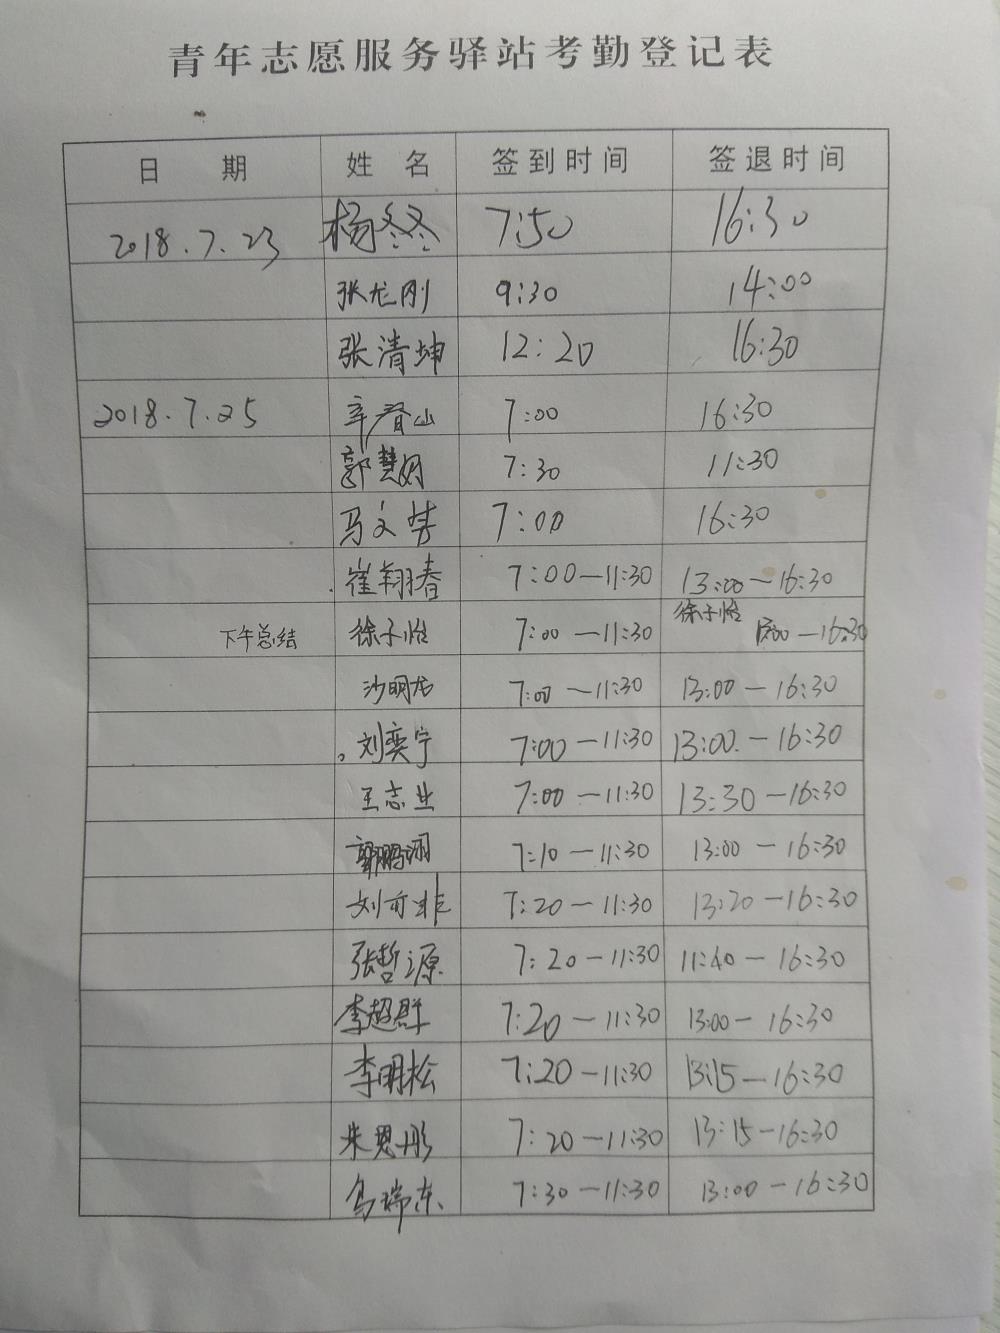 青年志愿服务驿站考勤登记表
日 期 姓 名 签到时间 签退时间
2018.7.23 杨冬冬 7:50 16:30
张龙刚 9:30 14:00
张清坤 12:20 16:30
2018.7.25 辛春山 7:00 16:30
郭慧娟 7:30 11:30
马文 7:00 16:30
崔翔春 7:00—11:30 13:00—16:30
下午总结 徐子怡 7:00—11:30 徐子怡 13:00—16:30
沙明龙 7:00—11:30 13:00—16:30
刘奕宁 7:00—11:30 13:00—16:30
王志业 7:00—11:30 13:30—16:30
郭鹏翔 7:10—11:30 13:00—16:30
刘可非 7:20—11:30 13:20—16:30
张哲源 7:20—11:30 11:40—16:30
李超群 7:20—11:30 13:00—16:30
李明松 7:20—11:30 13:15—16:30
朱思彤 7:20—11:30 13:15—16:30
乌瑞东 7:30—11:30 13:00—16:30